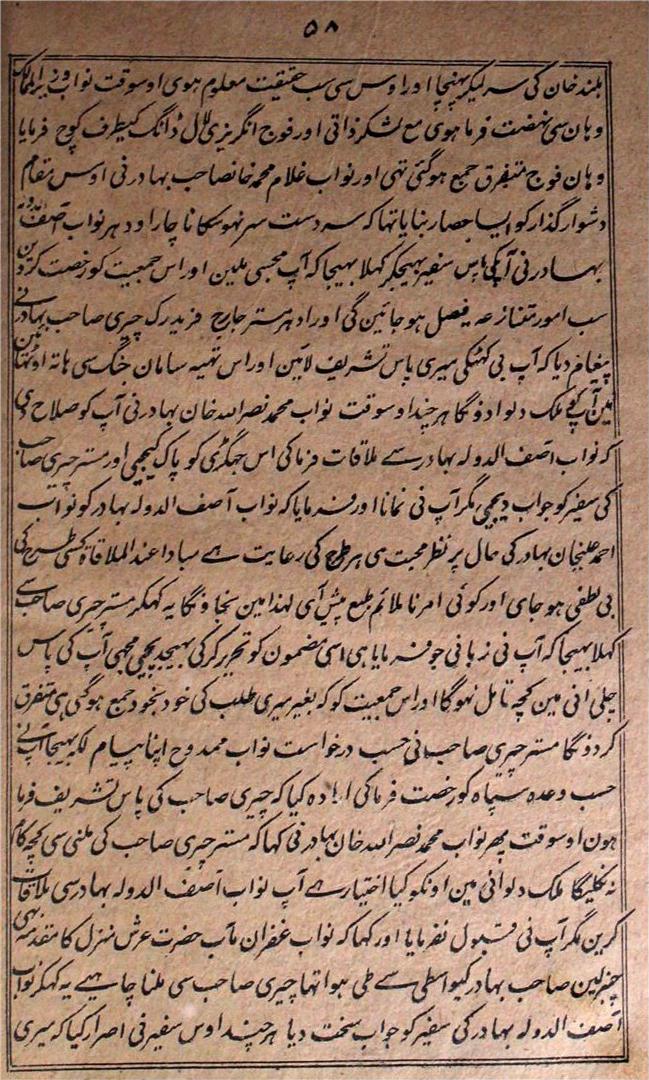 ۵۸
بلند خان کی سر لیکر پہنچا اور اوس سی سب حقیقت معلوم ہوی اوسوقت نواب وزیر الممالک
وہان سی نہضت فرما ہوی مع لشکر ذاتی اور فوج انگریزی لال ڈانگ کیطرف کوچ فرمایا
وہان فوج متفرق جمع ہوگئی تہی اور نواب غلام محمد خانصاحب بہادر نی اوس مقام
دشوار گذار کو ایسا حصار بنایا تہا کہ سر دست سر نہوسکا ناچار اودہر نواب آصف الدولہ
بہادر نی آپکی پاس سفیر بہیجکر کہلا بہیجا کہ آپ مجسی ملین اور اس جمعیت کو رخصت کردین
سب امور متنازعہ فیصل ہو جائین گی اور ادہر مستر جارج فریدرک چیری صاحب بہادر نے
پیغام دیا کہ آپ بی کہٹکی میری پاس تشریف لائین اور اس تہیہ سامان جنگ سی ہاتہ اوٹہائین
مین آپکو ملک دلوادونگا ہر چند اوسوقت نواب محمد نصر اللہ خان بہادر نی آپ کو صلاح دی
کہ نواب آصف الدولہ بہادر سے ملاقات فرماکی اس جہگڑی کو پاک کیجیی اور مستر چیری صاحب
کی سفیر کو جواب دیجیی مگر آپ نی نمانا اور فرمایا کہ نواب آصف الدولہ بہادر کو نواب
احمد علیخان بہادر کی حال پر نظر محبت ہی ہر طرح کی رعایت ہے مبادا عند الملاقاۃ کسی طرح کی
بی لطفی ہو جای اور کوئی امر نا ملائم طبع پیش آی لہذا مین نجاونگا یہ کہکر مستر چیری صاحب سے
کہلا بہیجا کہ آپ نی زبانی جو فرمایا ہی اسی مضمون کو تحریر کرکی بہیجدیجیی مجہی آپ کی پاس
چلی آنی مین کچہ تامل نہوگا اور اس جمعیت کو کہ بغیر میری طلب کی خود بخود جمع ہوگئی ہی متفرق
کردونگا مستر چیری صاحب نی حسب درخواست نواب ممدوح اپنا پیام لکہ بہیجا آپ نے
حسب وعدہ سپاہ کو رخصت فرماکی ارادہ کیا کہ چیری صاحب کی پاس تشریف فرما
ہون اوسوقت پہر نواب محمد نصر اللہ خان بہادر نی کہا کہ مستر چیری صاحب کی ملنی سی کچہ کام
نہ نکلیگا ملک دلوانی مین اونکو کیا اختیار ہے آپ نواب آصف الدولہ بہادر سی ملاقات
کرین مگر آپ نی قبول نفرمایا اور کہا کہ نواب غفران مآب حضرت عرش منزل کا مقدمہ بہی
صاحب بہادر کیواسطی سے طی ہوا تہا چیری صاحب سی ملنا چاہیے یہ کہکر نواب
آصف الدولہ بہادر کی سفیر کو جواب سخت دیا ہر چند اوس سفیر نی اصرار کیا کہ میری